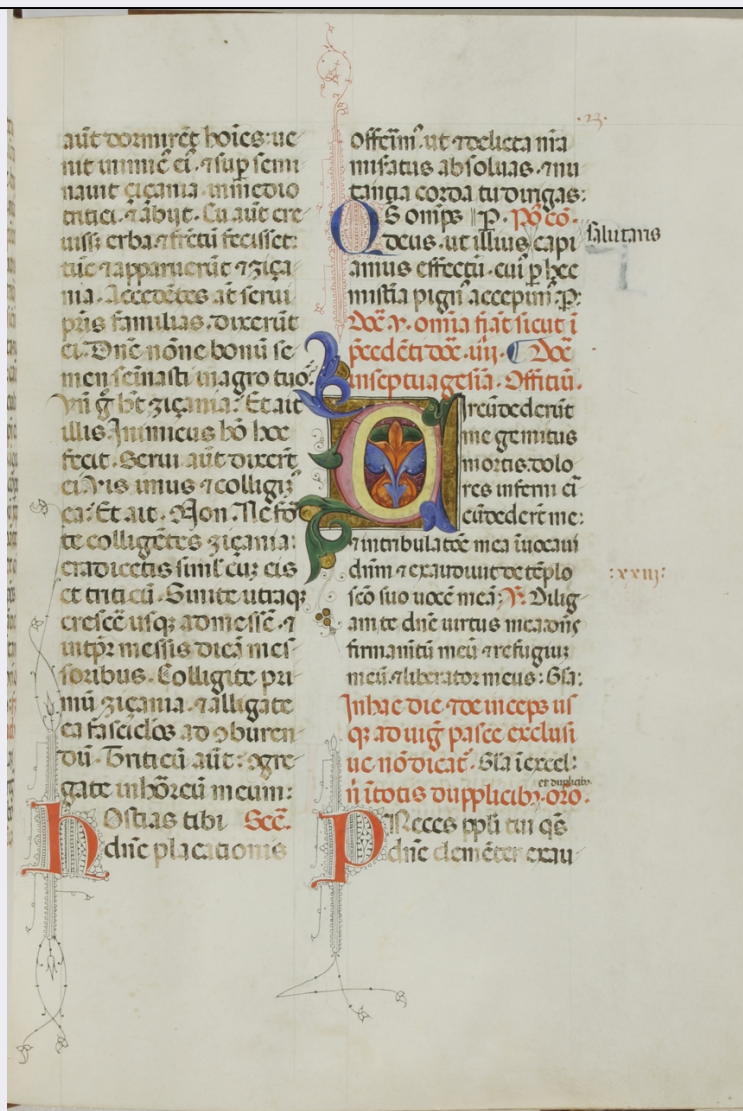 ·23·
aūt dormirēt hoīes: ue
nit inimic̄ ei. ⁊ sup̄ semi
nauit çiçania. in medio
tritici. ⁊ abijt. Cū aūt cre
uiss; erba. ⁊ fructū fecisset:
tūc ⁊ apparuerūt ⁊ ziça
nia. Accedētes aūt serui
pr̄is familias. dixerūt
ei. Dn̄e nōne bonū se
men semīasti in agro tuo?
Vn̄ ḡ h̄t ziçania? Et ait
illis. Inimicus hō hoc
fecit. Serui aūt dixerūt
ei. Vis imus ⁊ colligim̄
ea? Et ait. Non. Ne for
te colligētes ziçania:
eradicetis simł cuȝ eis
et triticū. Sinite utraqȝ
crescē usqȝ ad messē. ⁊
in tp̄r messis dicā mes
soribus. Colligite pri
mū ziçania. ⁊ alligate
ea fasciclos ad ꝯburen
dū. Triticū aūt: ꝯgre
gate in horreū meum:
Hostias tibi Sec̄.
dn̄e placationis
offerim̄. ut ⁊ delicta nr̄a
mis̄atus absoluas. ⁊ nu
tantia corda tu dirigas:
QS om̄ps P. Po co.
deus. ut illius capi salutaris
amus effectū. cui p̄ hec
mist̄ia pign̄ accepim̄. P:
Do͞c. v. omīa fiāt sicut ī
p̄cedēti do͞c. iiij. Do͞c
in septuagesīa. Offitiū.
Circūdederūt
me gemitus
mortis. dolo
res inferni cī
cūdederūt me:
⁊ in tribulatōe mea īuocaui
dn̄m ⁊ exaudiuit de tēplo
scō suo uocē meā: V. Dilig
am te dn̄e uirtus mea. dn̄s
firmamtū meū ⁊ refugiuȝ
meū. ⁊ liberator meus: Gła:
:xxiij:
In hac die ⁊ de inceps us
qȝ ad uiḡ pasce exclusi
ue nō dicat̄. Gła ī excel:
n̄ ī totis dupplicibȝ. Oro. et duplicibȝ
Preces ppli tui qs̄
dn̄e clemēter exau